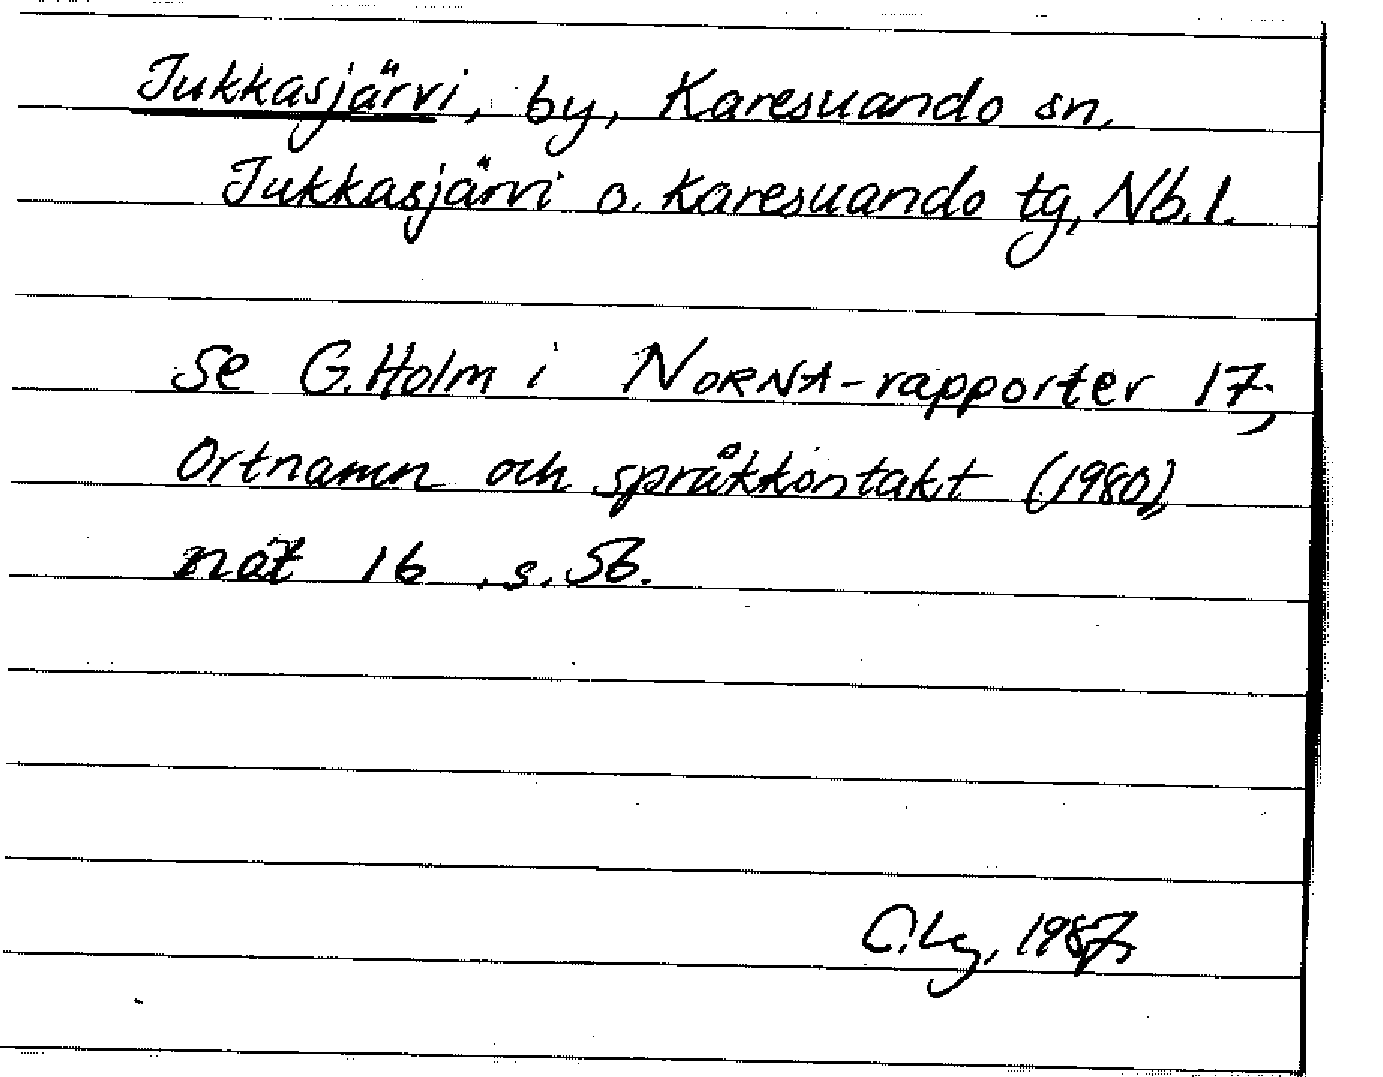 Jukkasjärvi, by, Karesuando sn,
Jukkasjärvi o. Karesuando tg, Nb. l.
Se G. Holm i NORNA-rapporter 17,
Ortnamn och språkkontakt (1980),
not 16, s. 56.
C. Lg, 1987